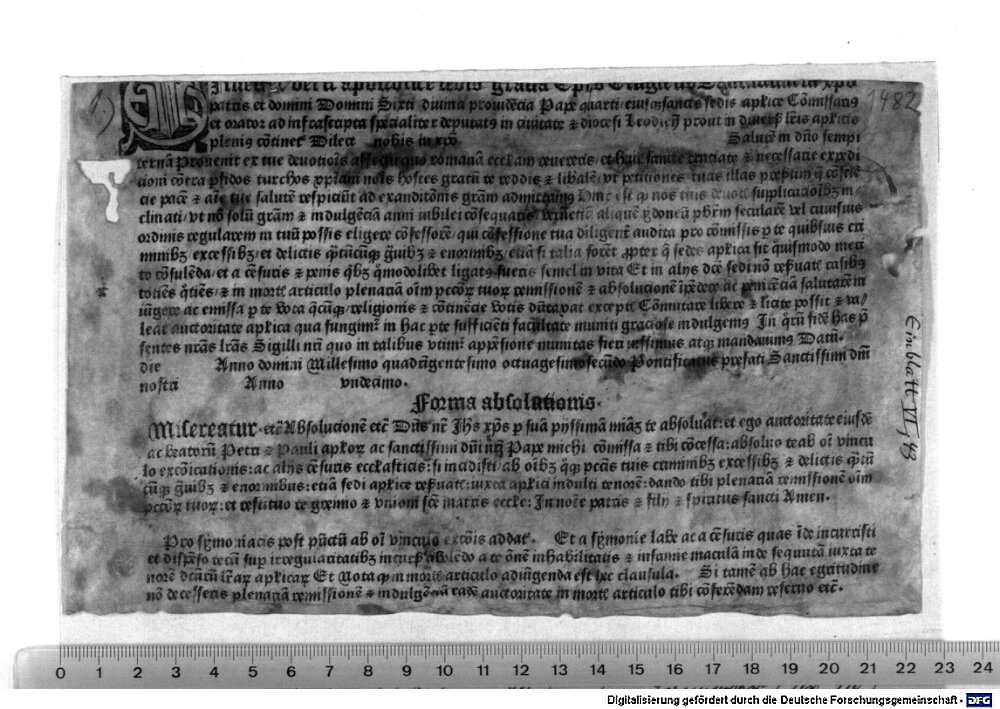 1482
patris et domini Domini Sixti diuina prouidẽcia Pape quarti: eiusq; sancte sedis aplice Cõmissariꝰ
et orator ad infrascripta specialiter deputatꝰ in ciuitate ⁊ diocesi Leodieñ prout in diuersꝭ lr̃is aplicis
pleniꝰ cõtinet Dilect nobis in xp̃o Salutẽ in dño sempi
ternã Prouenit ex tue deuotiõis affectu quo romanã eccl̃am reuereris: et huic sancte cruciate ⁊ necessarie expedi
tioni cõtra pfidos turchos xp̃iani nois hostes gratũ te reddis ⁊ libalẽ: vt petitiones tuas illas presertim q̃ cõscie
cie pacẽ ⁊ aĩe tue salutẽ respiciũt ad exauditõnis grãm admittamꝰ Hinc est q nos tuis deuotꝭ supplicacioĩbꝫ in
clinati: vt nõ solũ grãm ⁊ indulgẽciã anni iubilei cõsequaris: aliquẽ ydoneũ pbr̃m secularẽ vel cuiusuis
ordinis regularem in tuũ possis eligere cõfessorẽ: qui cõfessione tua diligent̾ audita pro cõmissis p te quibusuis cri
minibꝫ: excessibꝫ: et delictis quãtũcũqꝫ g̃uibꝫ ⁊ enormibꝫ: etiã si talia forẽt propter q̃ sedes aplica sit quõmodo meri
to cõsulẽda: et a cẽsuris ⁊ penis qbꝫ quõmodolibet ligatꝰ fueris semel in vita Et in alijs dc̃e sedi nõ reſuatꝭ casibꝫ
tociẽs q̃tiẽs: ⁊ in mortꝭ articulo plenariã oĩm pccõꝝ tuoꝝ remissionẽ ⁊ absolucionẽ ĩpẽdere ac penitẽciã salutarẽ in
iũgere ac emissa p te vota q̃cũqꝫ: religionis ⁊ cõtinẽcie votis dũtaxat exceptꝭ Cõmutare libere ⁊ licite possit ⁊ va/
leat auctoritate aplica qua fungimr̃ in hac pte sufficiẽti facultate muniti graciose indulgemꝰ In q̃rũ fidẽ has p̃
sentes nr̃as lr̃as Sigilli nr̃i quo in talibus vtimr̃ appẽsione munitas fieri iussimus atqꝫ mandauimꝰ Datũ.
die Anno domini Millesimo quadringentesimo octuagesimosecũdo Pontificatus prefati Sanctissimi dñi
nostri Anno vndecimo.
Forma absolutionis.
Misereatur. etc̃ Absolucionẽ etc̃ Dñs nr̃ Jhs xp̃s p suã pijssimã miã te absoluat: et ego auctoritate eiusdẽ
ac beatorũ Petri ⁊ Pauli aplõꝝ ac sanctissimi dñi nr̃i Pape michi cõmissa ⁊ tibi cõcessa: absoluo te ab oĩ vincu
lo excõicationis: ac alijs cẽsuris ecclasticis: si incidisti: ab oĩbꝫ q̃qꝫ pctĩs tuis criminibꝫ excessibꝫ ⁊ delictis q̃tũ
cũqꝫ g̃uibꝫ ⁊ enormibus: etiã sedi aplice reſuatꝭ: iuxta aplici indulti tenorẽ: dando tibi plenariã remissionẽ oĩm
pccõꝝ tuoꝝ: et restituo te gremio ⁊ vnioni sc̃e matris eccl̃e: In noĩe patris ⁊ filij ⁊ spiritus sancti Amen.
Pro symoniacis post pũctũ ab oĩ vinculo excõis addat̾. Et a symonie labe ac a cẽsuris quas ĩde incurristi
et dispẽso tecũ sup irregularitatibꝫ incurſꝭ aboledo a te õnẽ inhabilitatis ⁊ infamie maculã inde sequutã iuxta te
norẽ dc̃arũ lr̃aꝝ aplicaꝝ Et Nota q in mortꝭ articulo adiũgenda est hec clausula. Si tamẽ ab hac egritudine
nõ decesseris plenariã remissionẽ ⁊ indulgẽciã eadẽ auctoritate in mortꝭ articulo tibi cõferẽdam reseruo etc̃.
Einblatt VI, 43
0 1 2 3 4 5 6 7 8 9 10 11 12 13 14 15 16 17 18 19 20 21 22 23 24
Digitalisierung gefördert durch die Deutsche Forschungsgemeinschaft - DFG